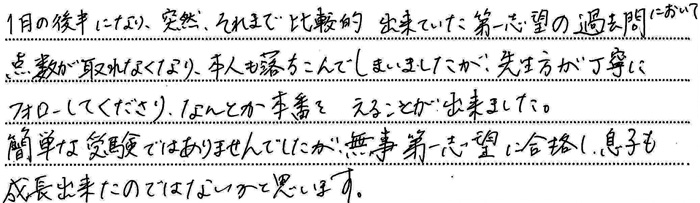 1月の後半になり、突然、それまで比較的 出来ていた第一志望の過去問において
点数が取れなくなり、本人も落ちこんでしまいましたが、先生方が丁寧に
フォローしてくださり、なんとか本番を えることが出来ました。
簡単な受験ではありませんでしたが、無事第一志望に合格し、息子も
成長出来たのではないかと思います。